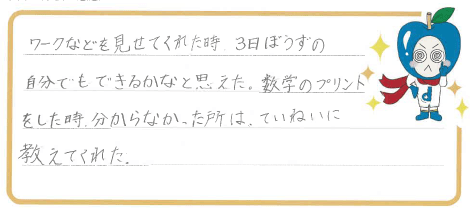 ワークなどを見せてくれた時、3日ぼうずの
自分でもできるかなと思えた。数学のプリント
をした時、分からなかった所は、ていねいに
教えてくれた。